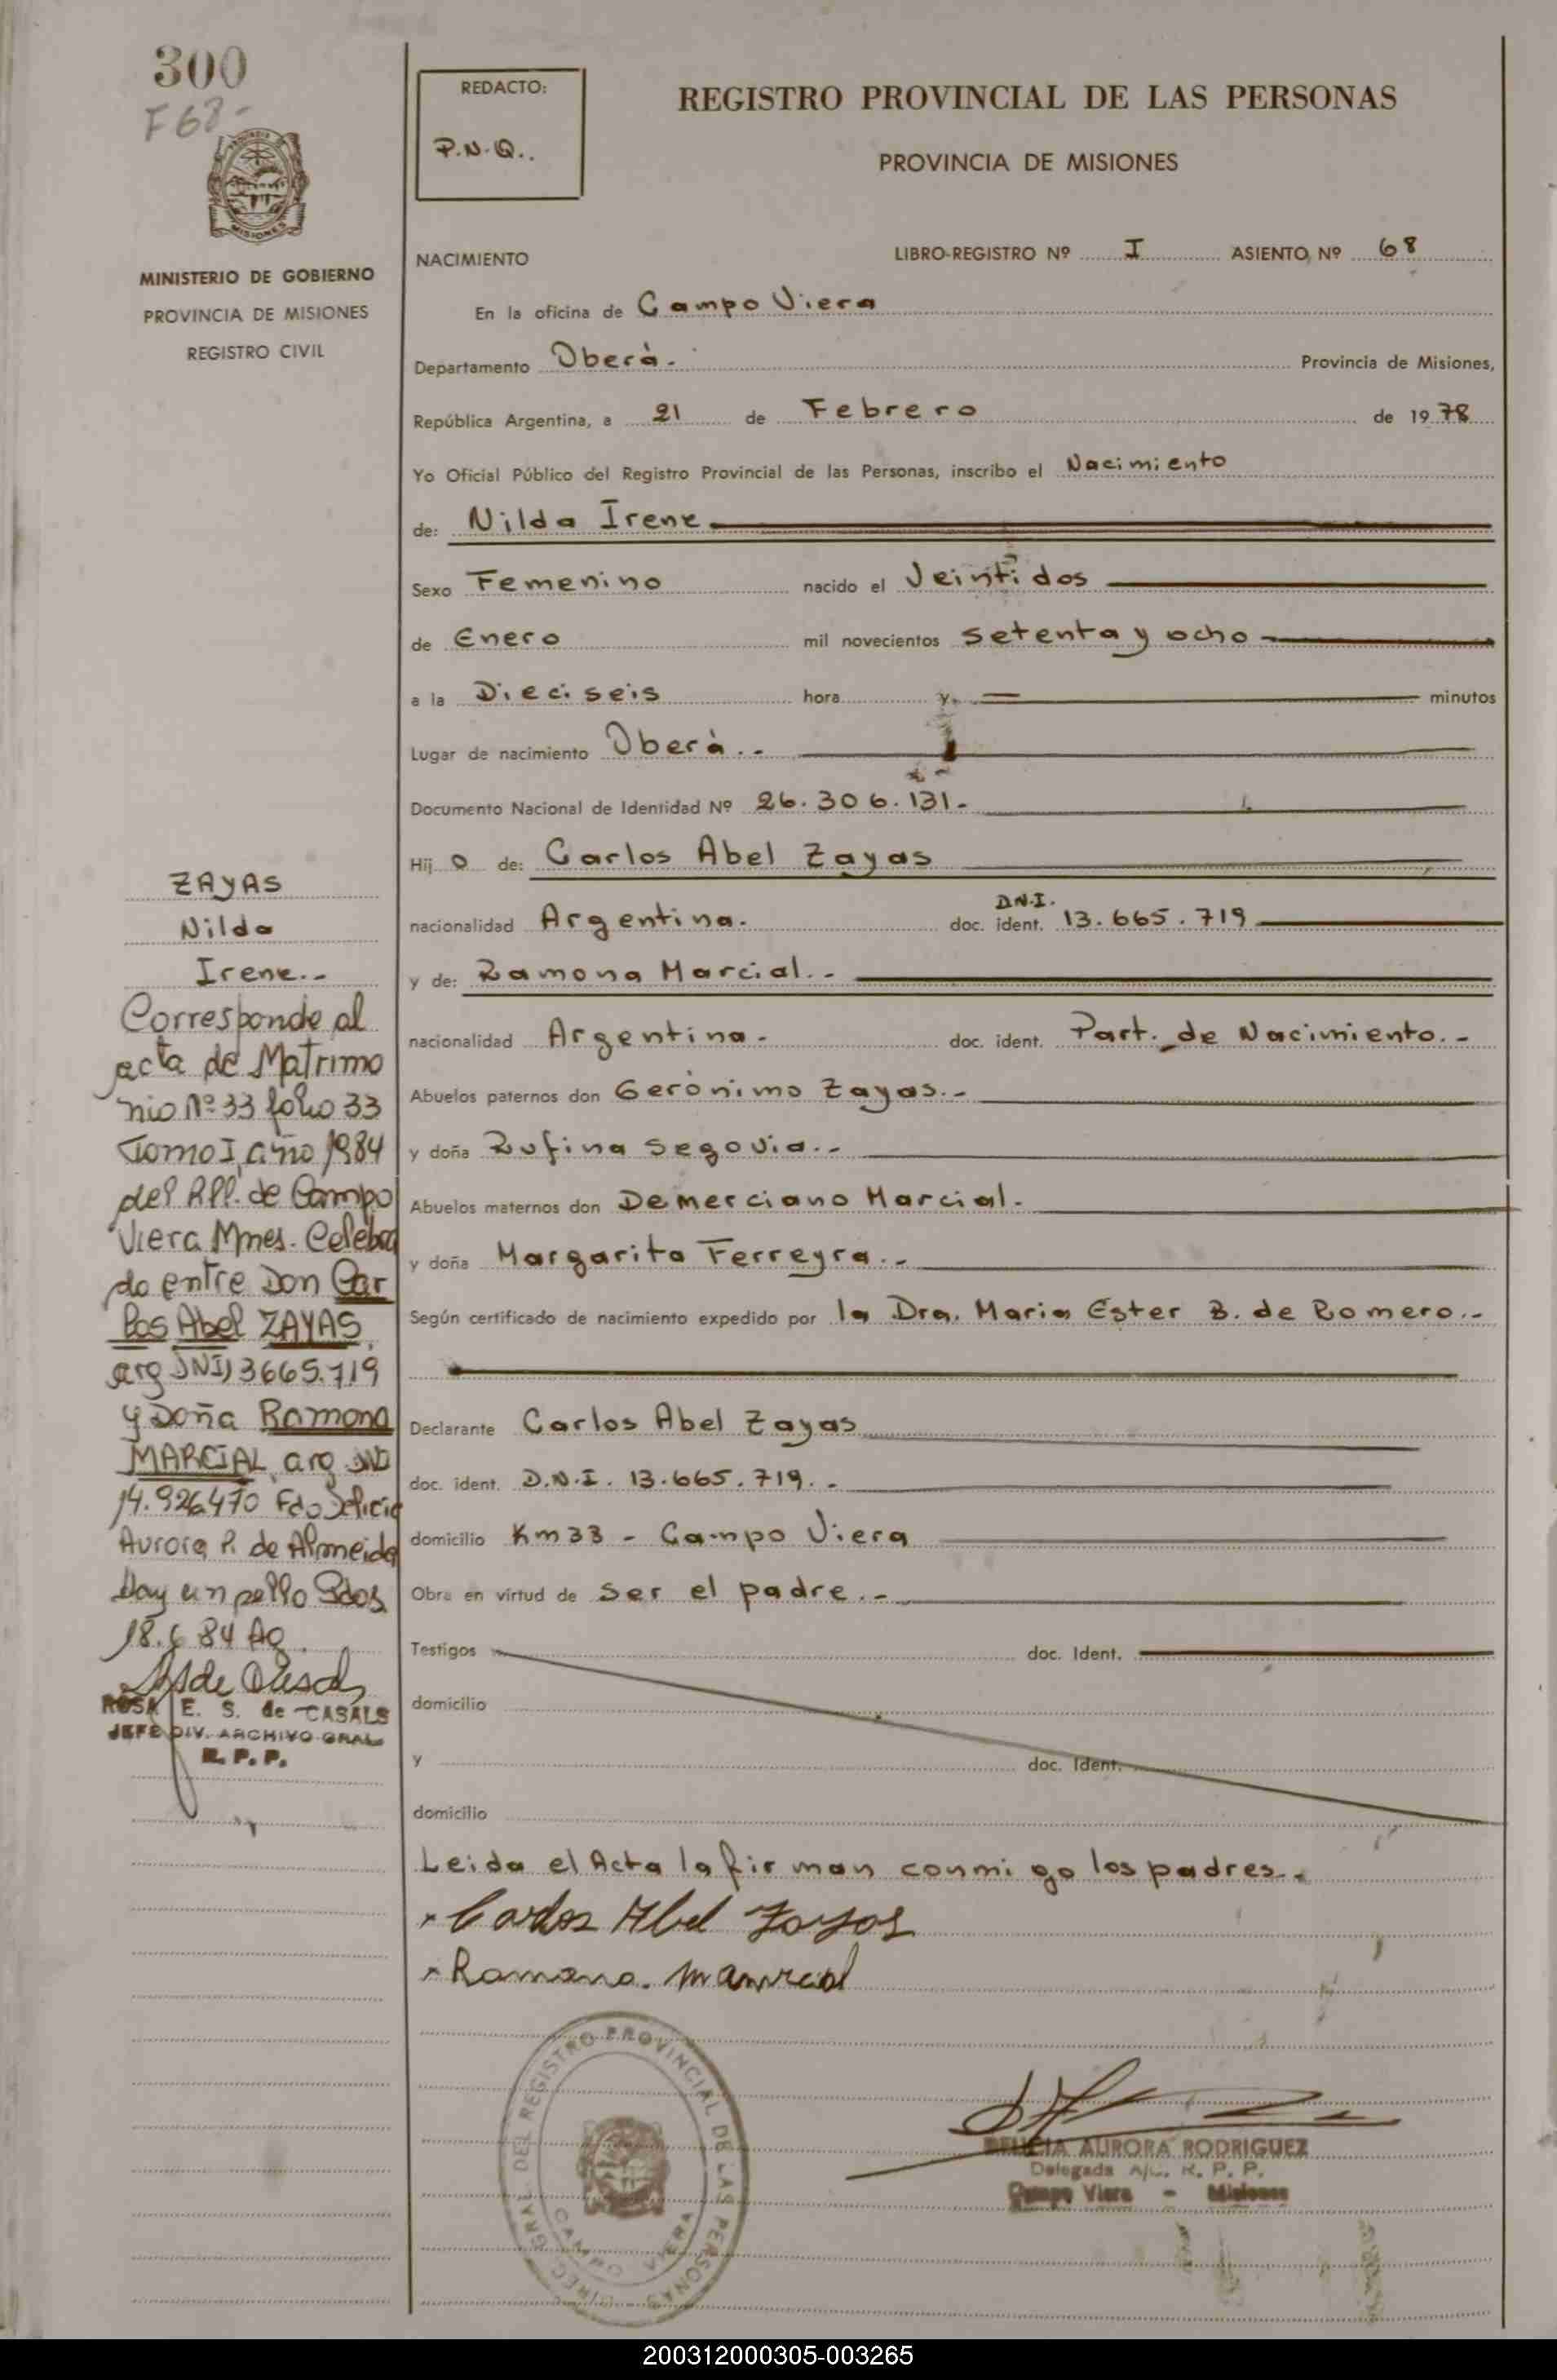 300
F68-
MINISTERIO DE GOBIERNO
PROVINCIA DE MISIONES
REGISTRO CIVIL
REDACTO:
P.N.Q..
REGISTRO PROVINCIAL DE LAS PERSONAS
PROVINCIA DE MISIONES
NACIMIENTO
LIBRO-REGISTRO Nº I ASIENTO Nº 68
En la oficina de Campo Viera
Departamento Oberà. Provincia de Misiones,
República Argentina, a 21 de Febrero de 1978
Yo Oficial Público del Registro Provincial de las Personas, inscribo el Nacimiento
de: Nilda Irene
Sexo Femenino nacido el Veintidos
de Enero mil novecientos setenta y ocho
a la Dieciseis hora y minutos
Lugar de nacimiento Oberà..
Documento Nacional de Identidad Nº 26.306.131.
Hij o de: Carlos Abel Zayas
D.N.I.
nacionalidad Argentina. doc. ident. 13.665.719
y de: Ramona Marcial..
nacionalidad Argentina. doc. ident. Part. de Nacimiento.-
Abuelos paternos don Gerònimo Zayas.-
y doña Rufina Segovia..
Abuelos maternos don Demerciano Marcial.
y doña Margarita Ferreyra..
Según certificado de nacimiento expedido por la Dra. Maria Ester B. de Romero.-
Declarante Carlos Abel Zayas
doc. ident. D.N.I. 13.665.719..
domicilio Km 33 - Campo Viera
Obra en virtud de ser el padre.-
Testigos doc. Ident.
domicilio
y doc. Ident.
domicilio
Leida el Acta la firman conmigo los padres..
Carlos Abel Zayas
Ramona Marcial
ZAYAS
Nilda
Irene..
Corresponde al
acta de Matrimo
nio Nº 33 folio 33
Tomo I, año 1984
del RPP. de Campo
Viera Mnes. Celebra
do entre Don Car
los Abel ZAYAS
arg DNI 13665.719
y Doña Ramona
MARCIAL arg DNI
14.926.470 Fdo Delicia
Aurora R. de Almeida
Hay un sello Pdas
18.6 84 AQ
ROSA E. S. de CASALS
JEFE DIV. ARCHIVO GRAL
R. P. P.
DIREC. GRAL. DEL REGISTRO PROVINCIAL DE LAS PERSONAS
CAMPO VIERA
DELICIA AURORA RODRIGUEZ
Delegada A/c. R. P. P.
Campo Viera - Misiones
200312000305-003265